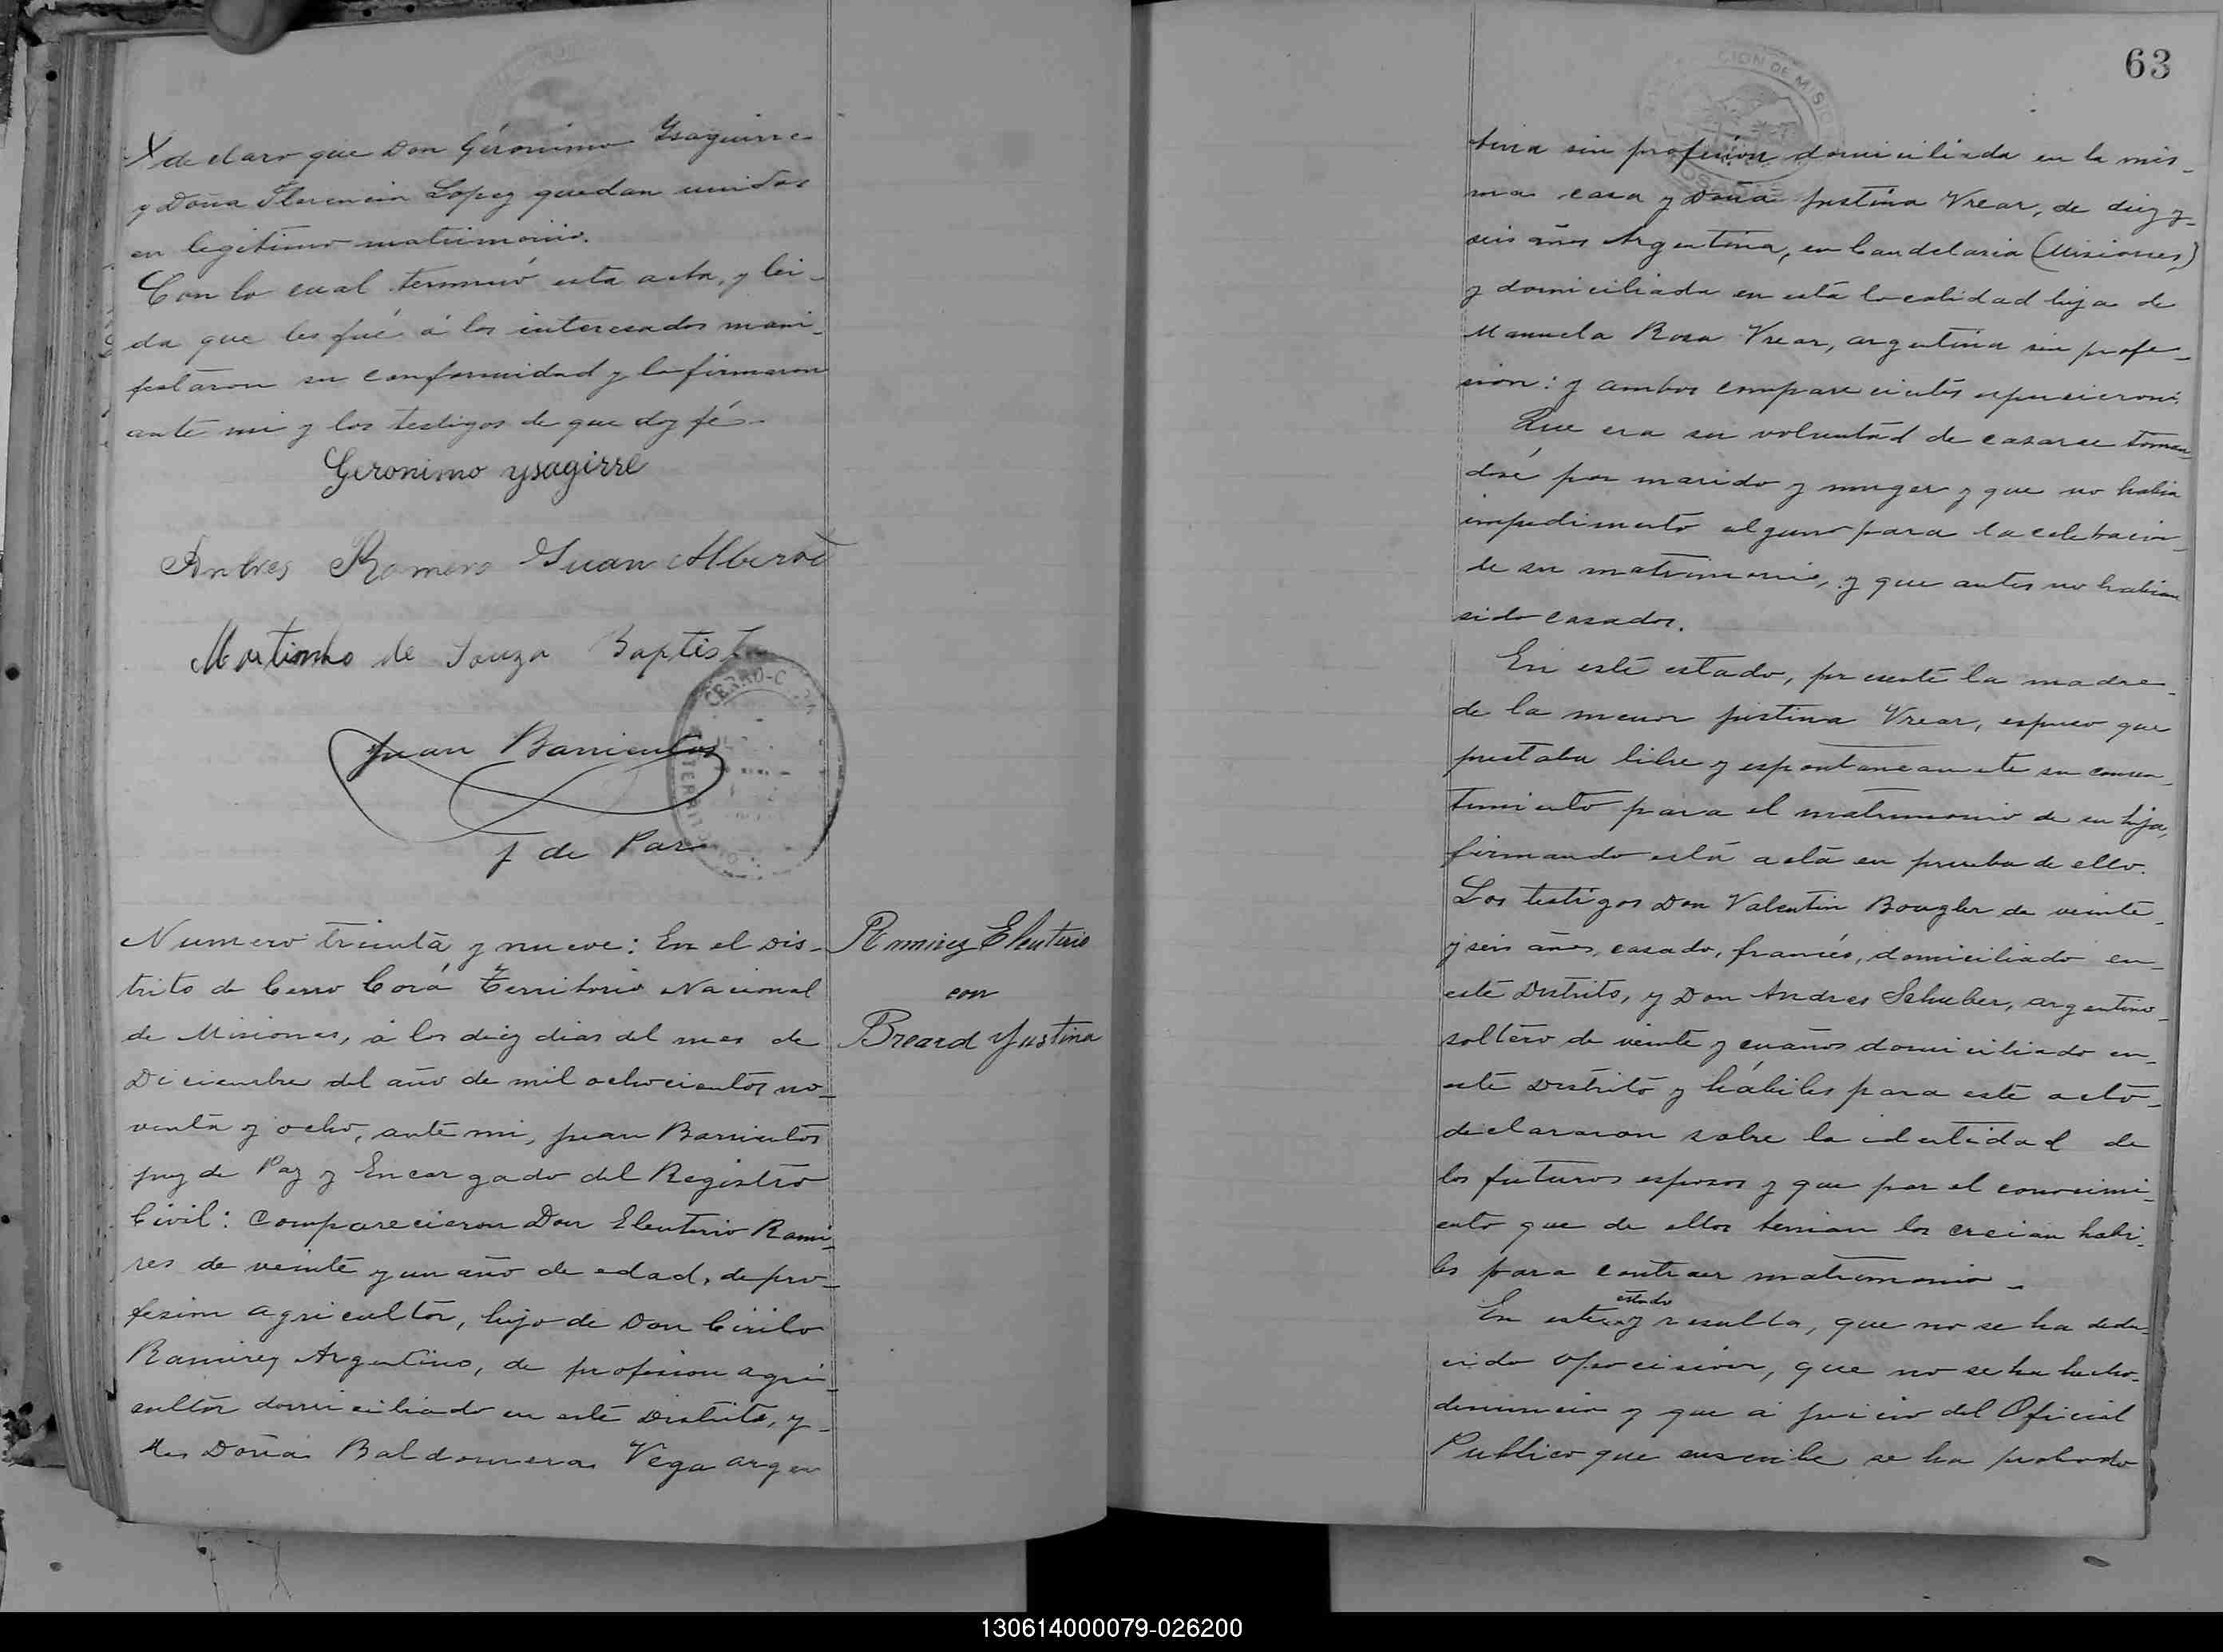 y declaro que Don Gerónimo Ysaguirre
y Doña Florencia Lopez quedan unidos
en legitimo matrimonio.
Con lo cual terminó esta acta, y lei-
da que les fué á los interesados mani-
festaron su conformidad y la firmaron
ante mi y los testigos de que doy fé.
Geronimo ysagirre
Andres Romero Juan Alberto
Martinho de Souza Baptista
CERRO-C
TERRITORIO
Juan Barrientos
J de Paz
Numero treinta y nueve: En el Dis-
trito de Cerro Corá Territorio Nacional
de Misiones, á los diez dias del mes de
Diciembre del año de mil ochocientos no-
venta y ocho, ante mi, Juan Barrientos
juez de Paz y Encargado del Registro
Civil: Comparecieron Don Eleuterio Rami-
res de veinte y un año de edad, de pro-
fesion agricultor, hijo de Don Cirilo
Ramirez Argentino, de profesion agri-
cultor domiciliado en este Distrito, y
de Doña Baldomera Vega argen
Ramirez Eleuterio
con
Breard Yustina
63
CION DE MISIO
tina sin profesion domiciliada en la mis-
ma casa y Doña Justina Vrear, de diez y
seis años Argentina, en Candelaria (Misiones)
y domiciliada en esta localidad hija de
Manuela Rosa Vrear, argentina sin profe-
sion: y ambos comparecientes espusieron:
Que era su voluntad de casarse toman-
dose por marido y muger y que no habia
impedimento alguno para la celebracion
de su matrimonio, y que antes no habian
sido casados.
En este estado, presente la madre
de la menor Justina Vrear, espuso que
prestaba libre y espontaneamente su consen-
timiento para el matrimonio de su hija,
firmando esta acta en prueba de ello.
Los testigos Don Valentin Bougler de veinte
y seis años, casado, francés, domiciliado en
este Distrito, y Don Andres Schuber, argentino
soltero de veinte y cuaños domiciliado en
este Distrito y hábiles para este acto
declararon sobre la identidad de
los futuros esposos y que por el conocimi-
ento que de ellos tenian los creian habi-
les para contraer matrimonio.
estado
En este y resulta, que no se ha dedu-
cido oposicion, que no se ha hecho
denuncia y que á juicio del Oficial
Publico que suscribe se ha probado
130614000079-026200